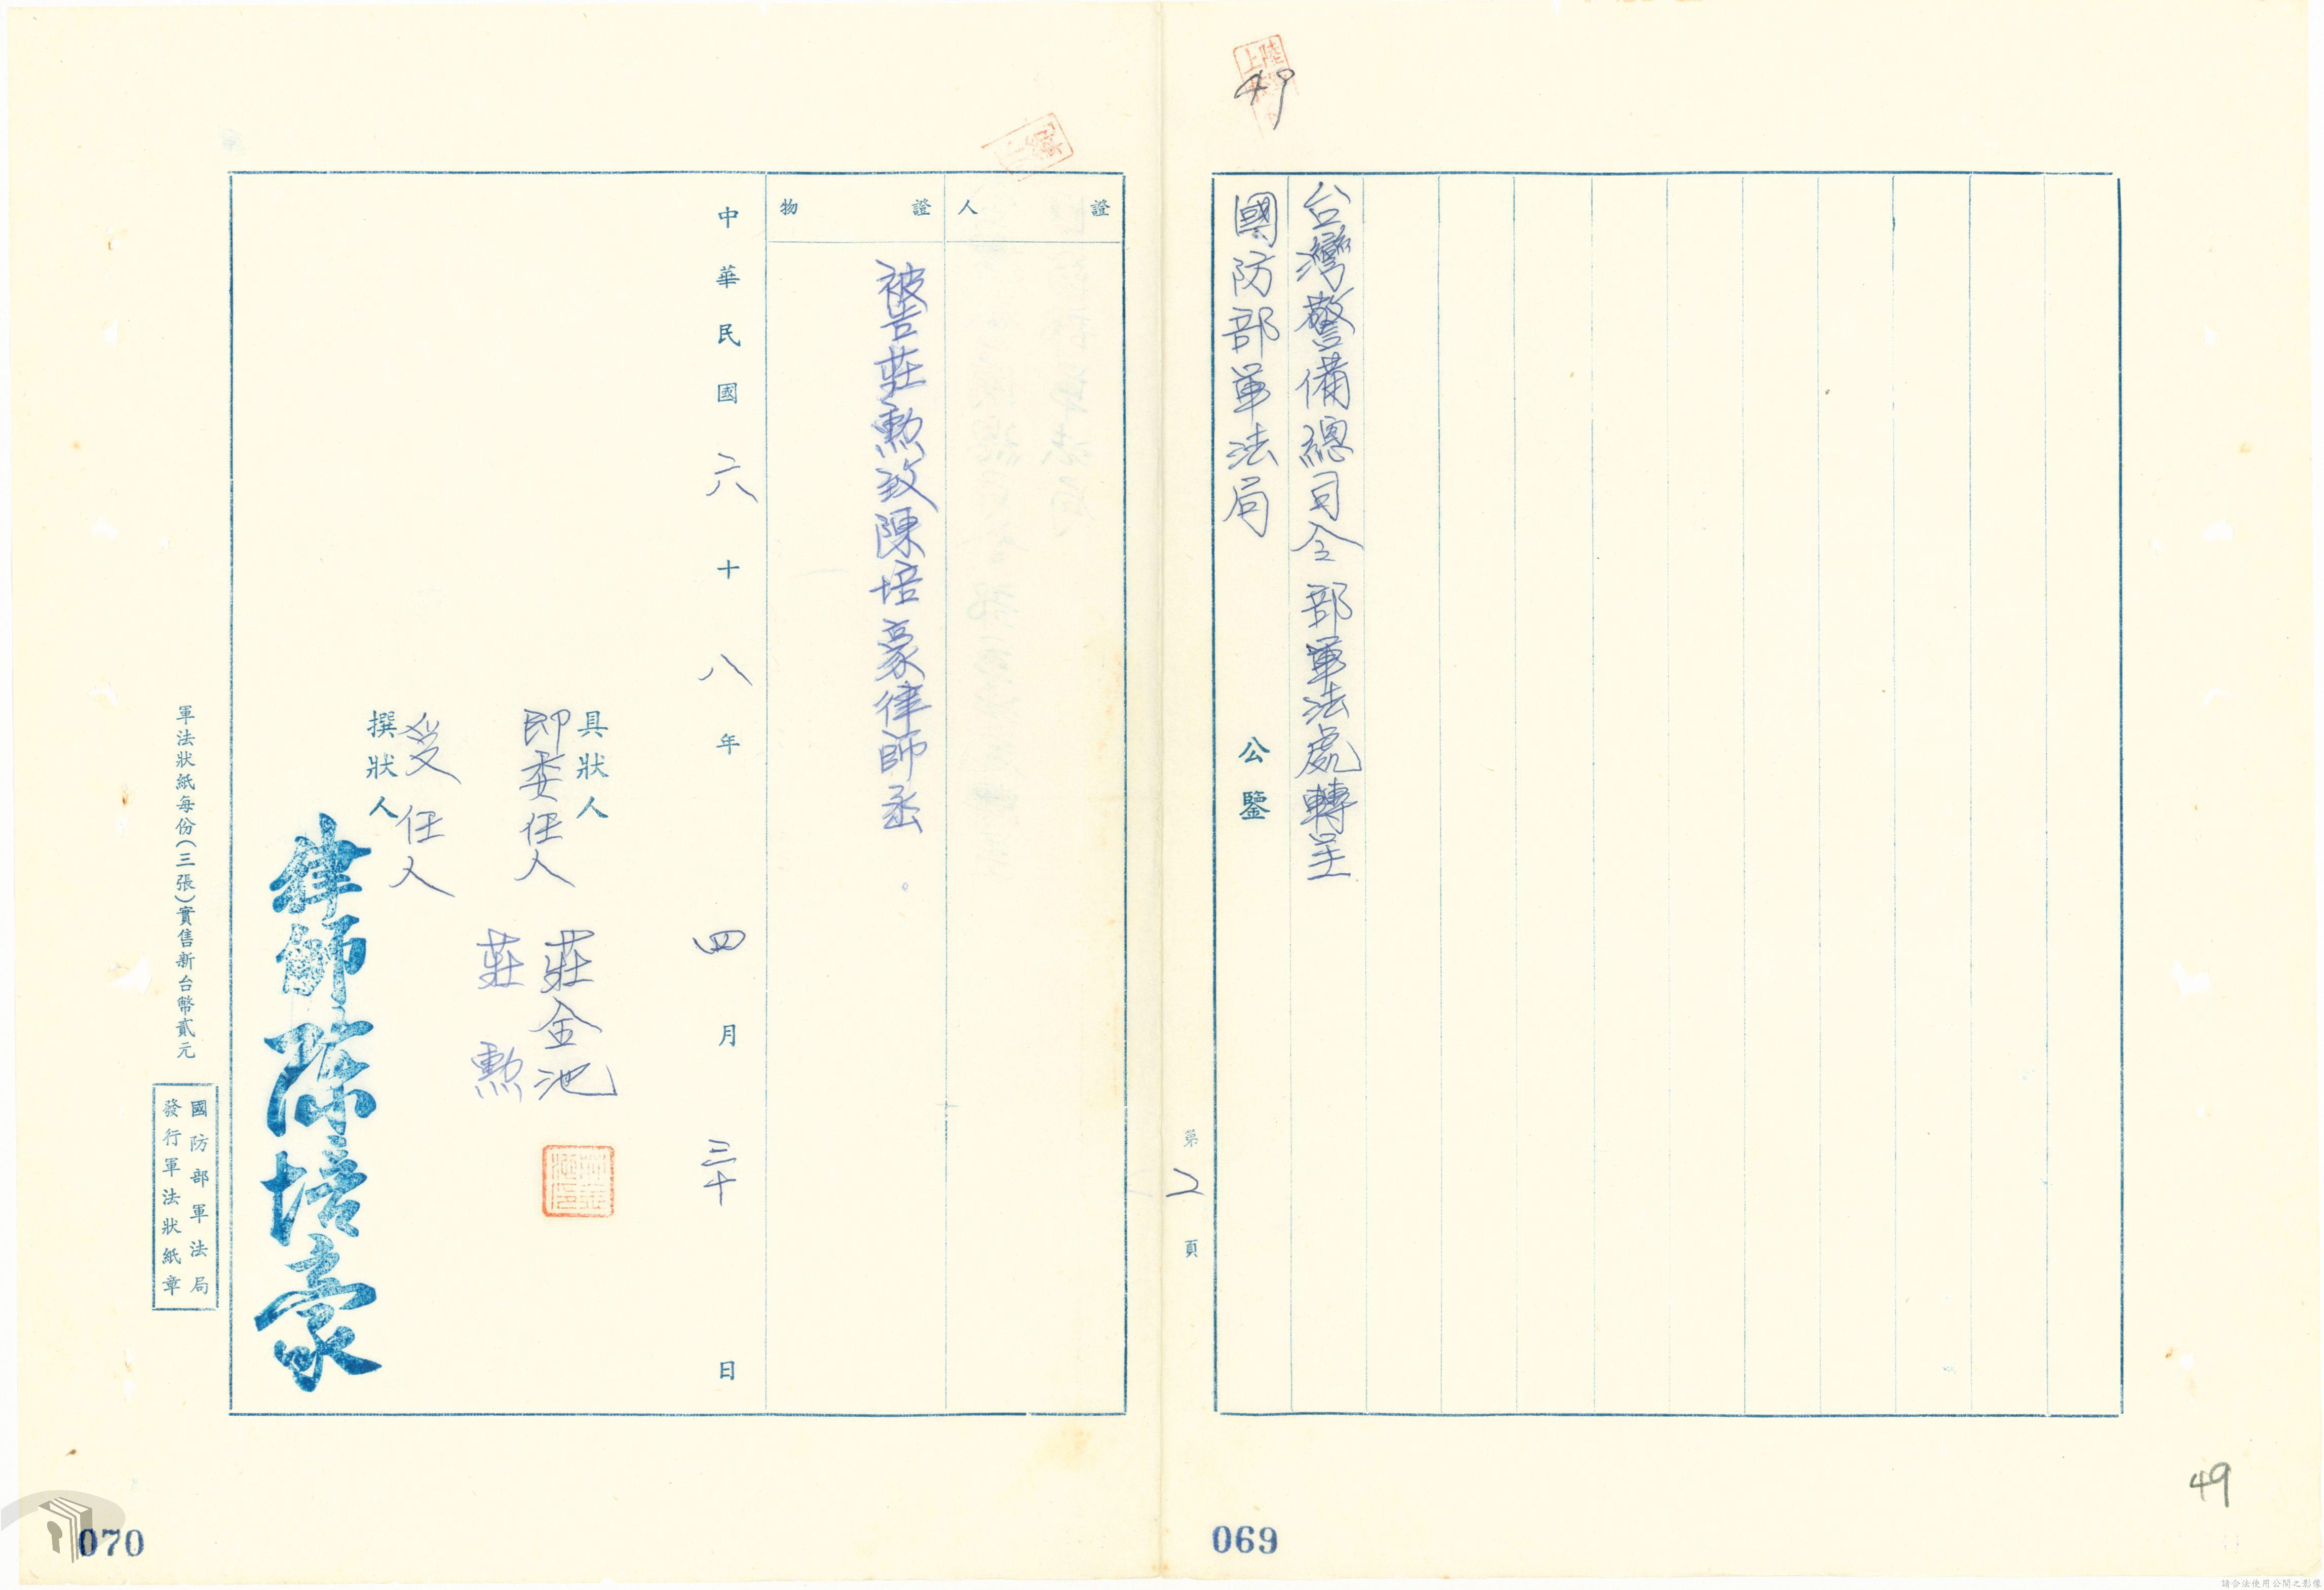 49
台灣警備總司令部軍法處轉呈
國防部軍法局 公鑒
第2頁
49
069
證人
證物
被告莊勲致陳培豪律師函。
中華民國六十八年四月三十日
具狀人
即委任人 莊金池
莊勲
受任人
撰狀人
律師陳培豪
軍法狀紙每份(三張)實售新台幣貳元
國防部軍法局
發行軍法狀紙章
070
請合法使用公開之影像